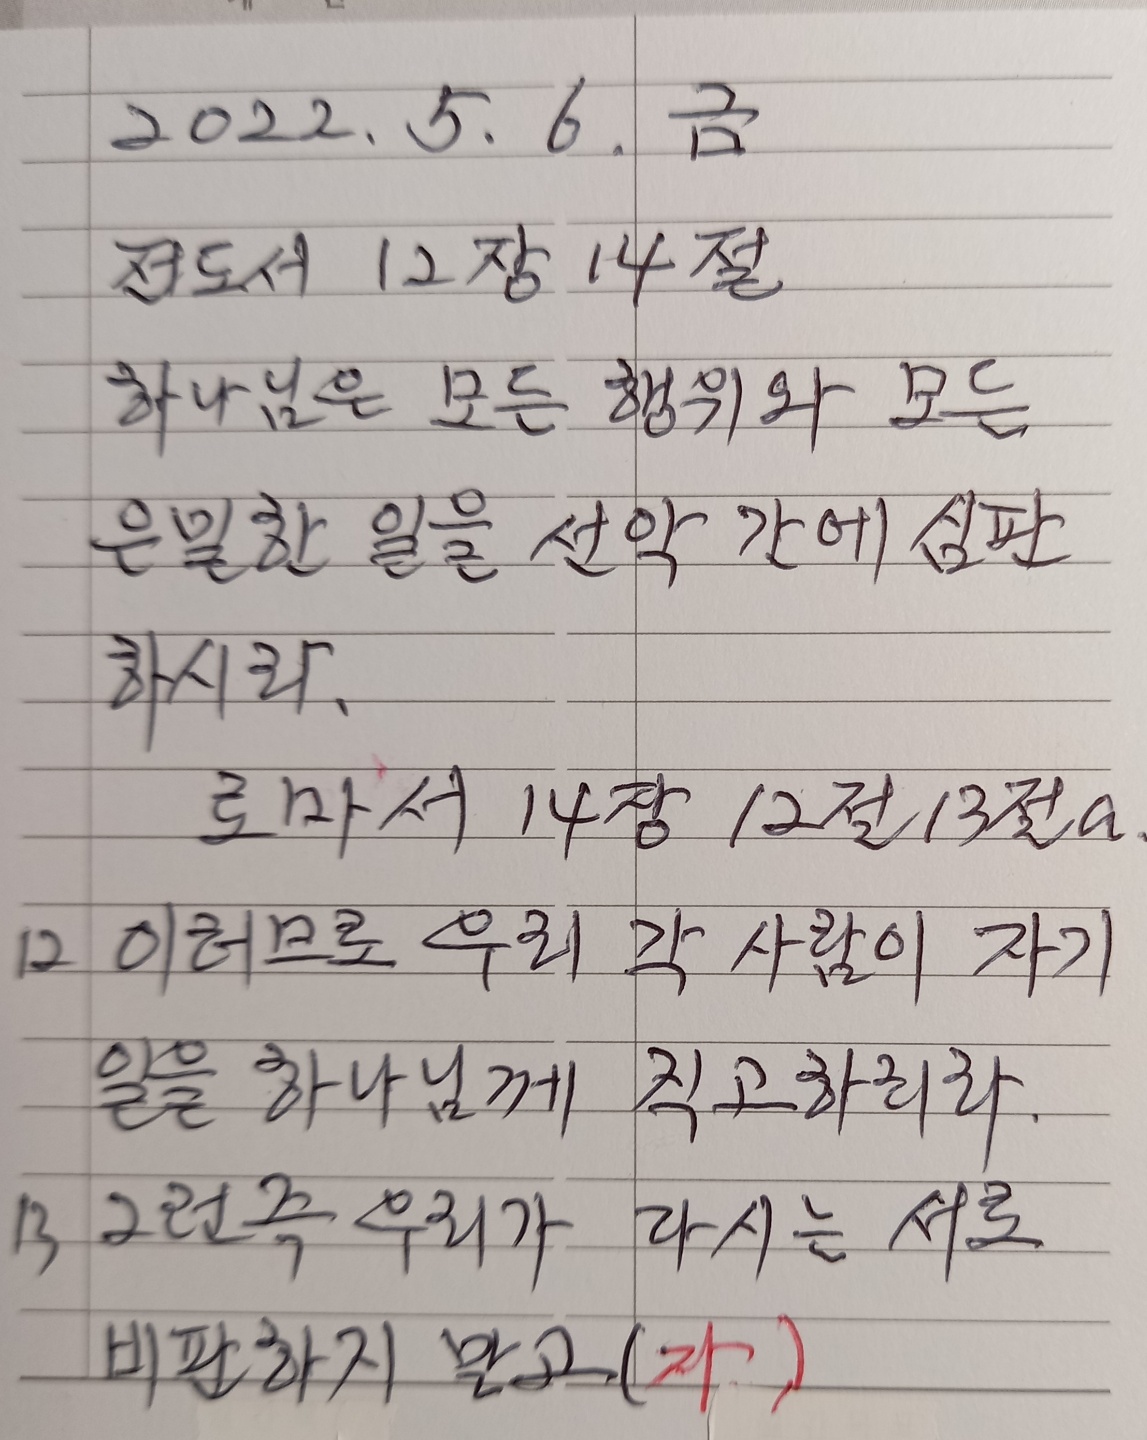 2022. 5. 6. 금
전도서 12장 14절
하나님은 모든 행위와 모든
은밀한 일을 선악 간에 심판
하시라.
로마서 14장 12절, 13절a.
12 이러므로 우리 각 사람이 자기
일을 하나님께 직고하리라.
13 그런즉 우리가 다시는 서로
비판하지 말고 (자.)